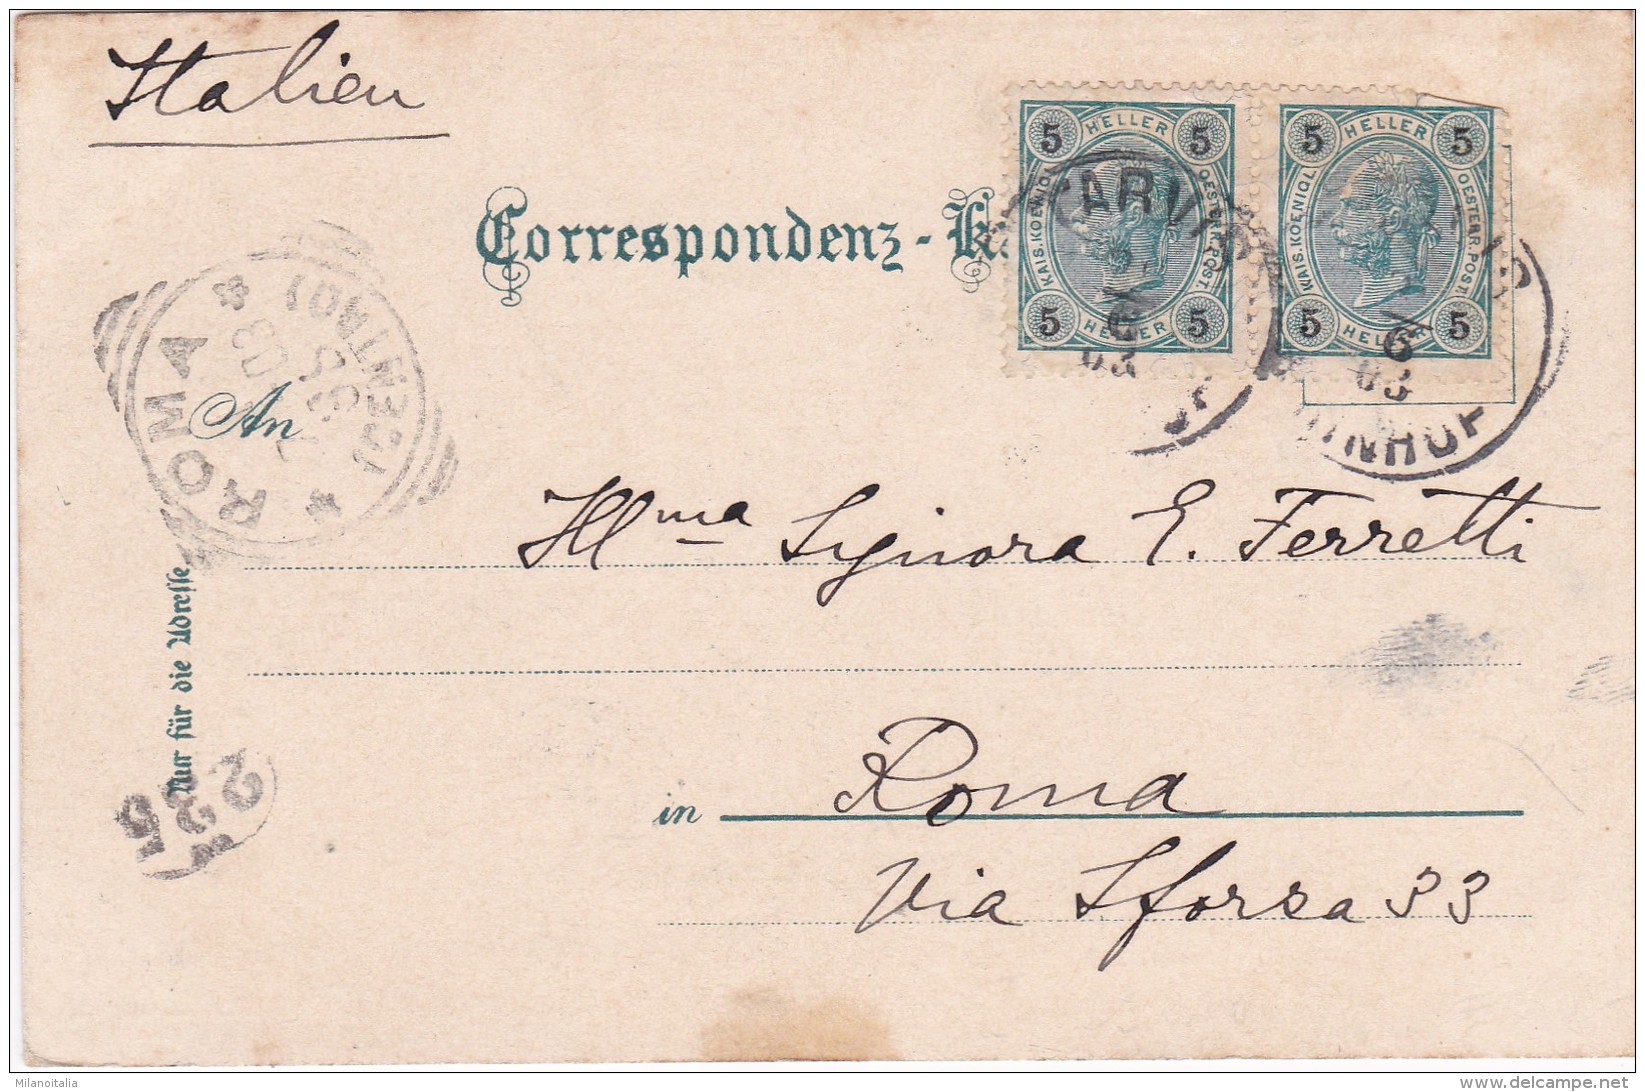 Italien
Correspondenz-
5 HELLER 5
KAIS. KOENIGL. OESTERR. POST.
5 HELLER 5
5 HELLER 5
KAIS. KOENIGL. OESTERR. POST.
5 HELLER 5
6
03
ROMA
03
An
Illma Signora E. Ferretti
Nur für die Adresse
in Roma
Via Sforza 33
Milanoitalia
delcampe.net